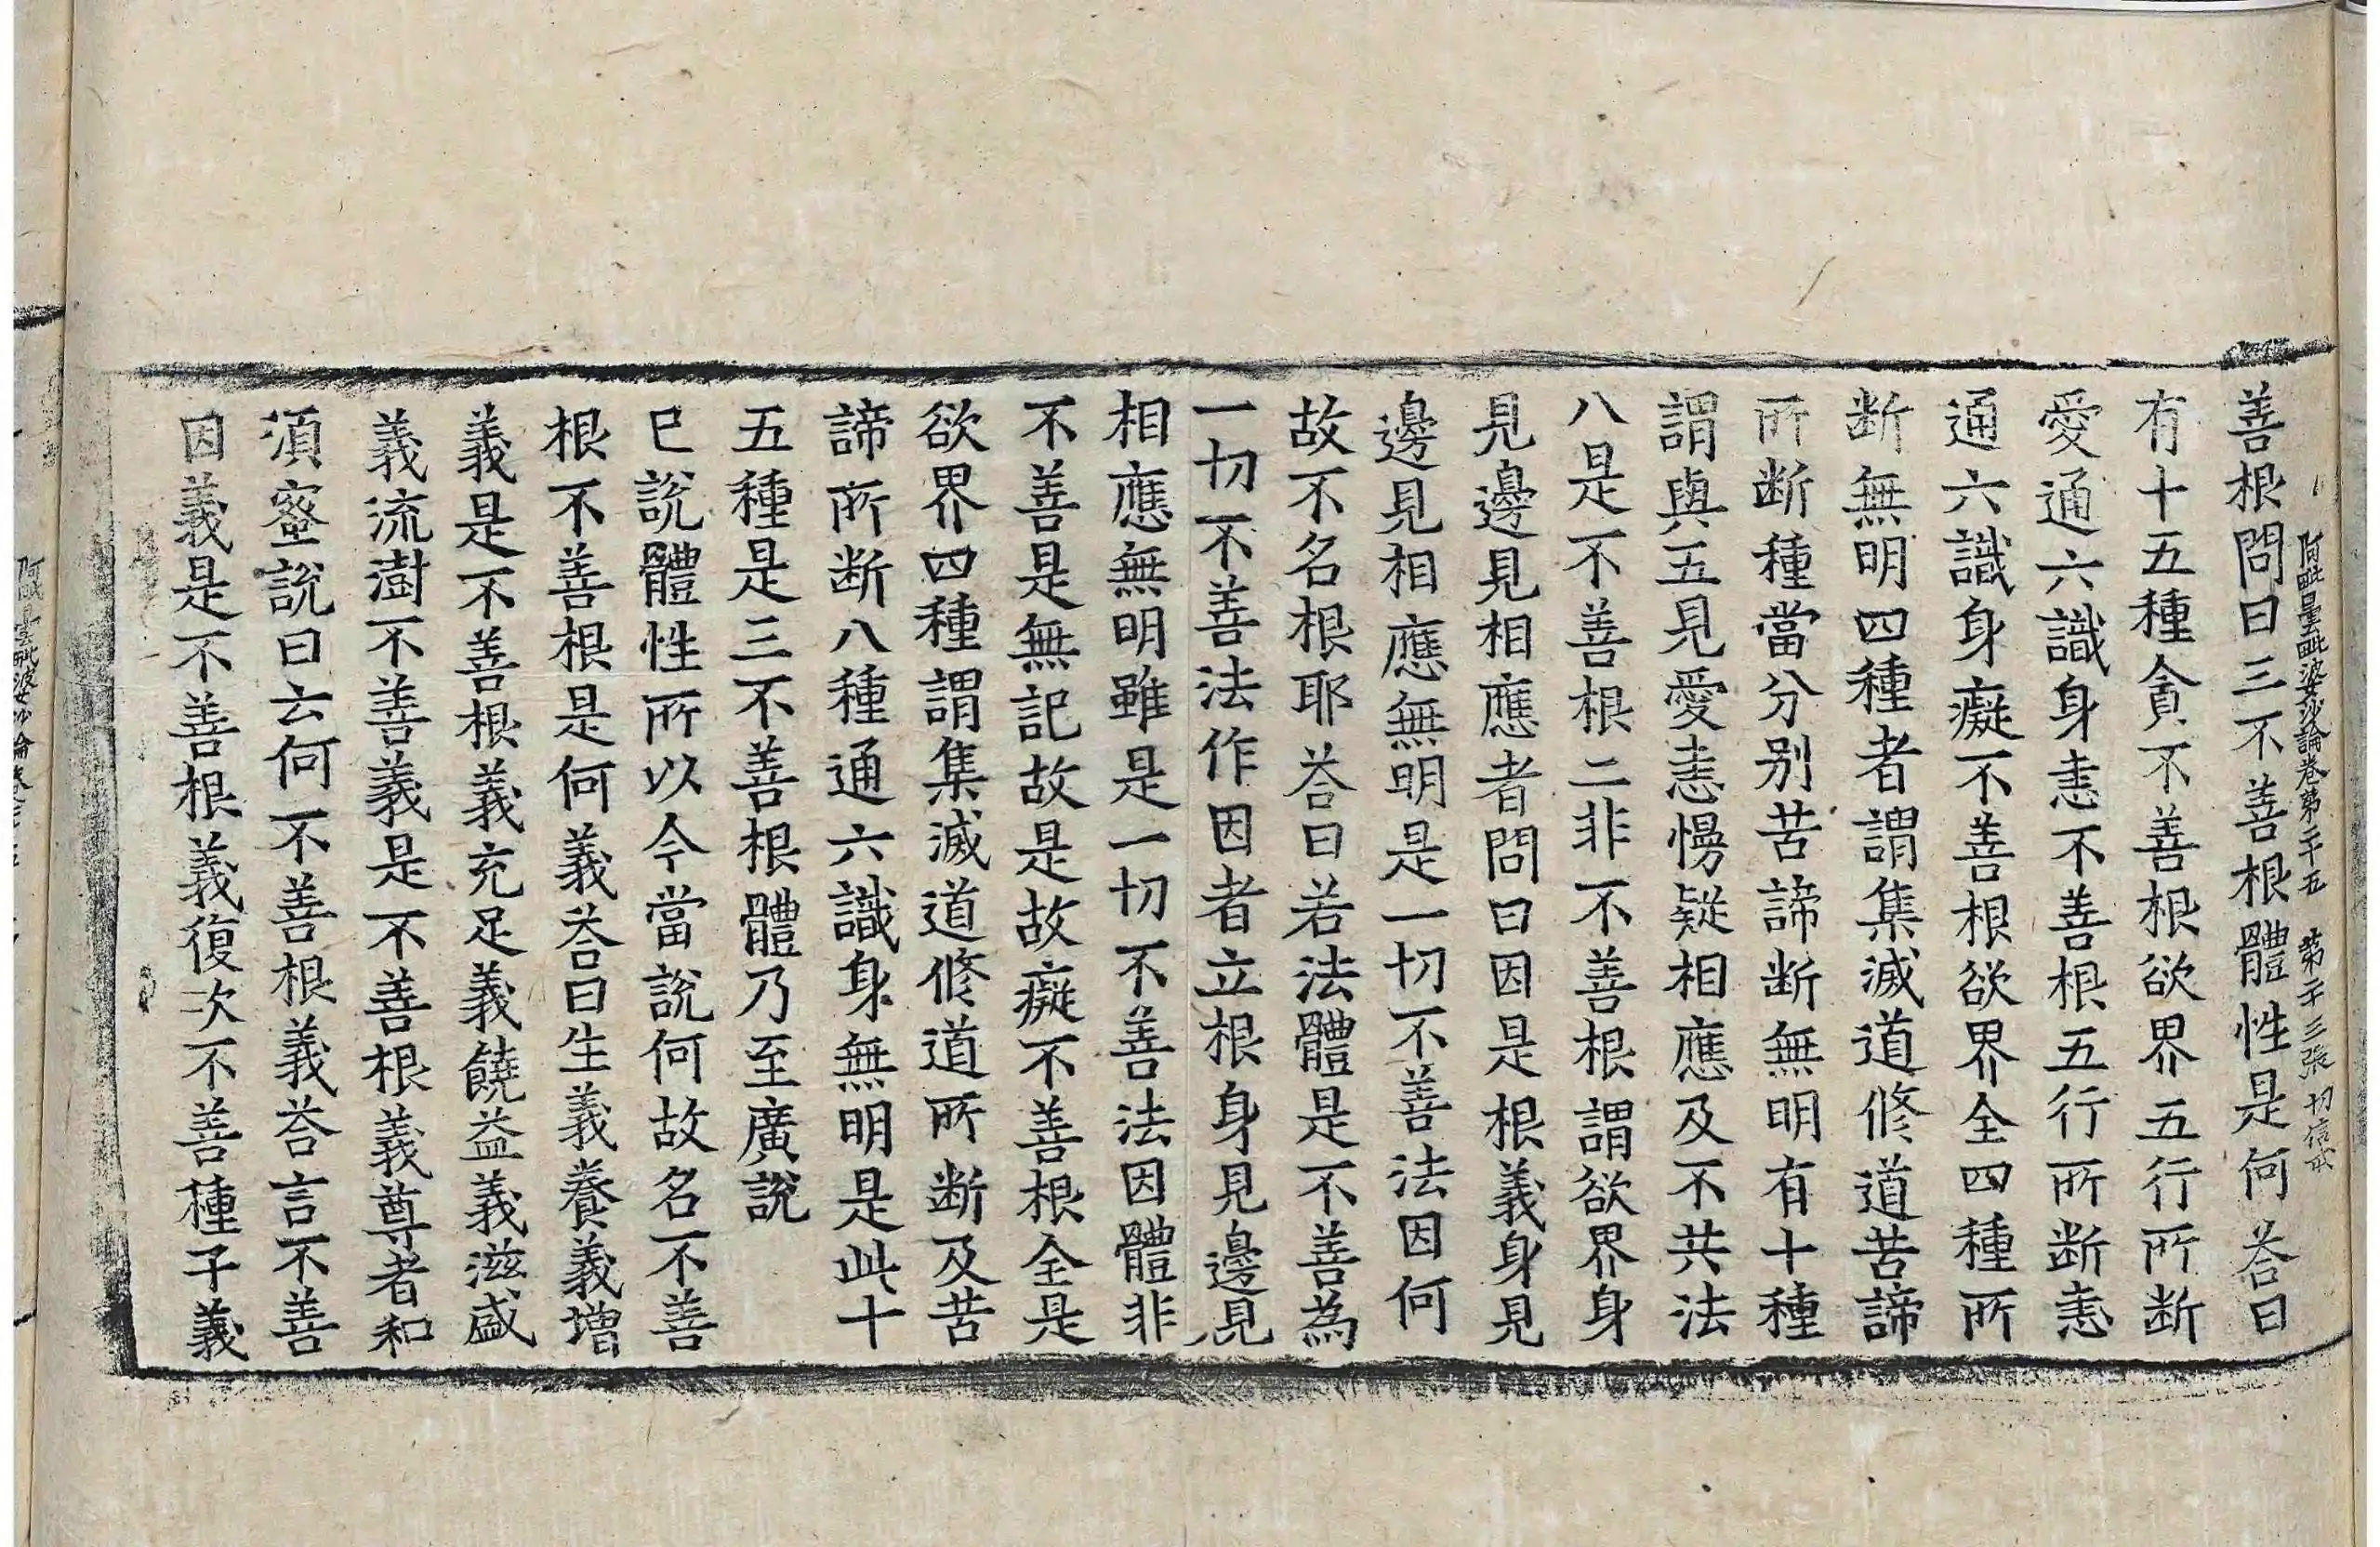 善根問曰三不善根體性是何荅曰
阿毗曇毗婆沙論卷第二十五 第二十三張 切
有十五種貪不善根欲界五行所断
愛通六識身恚不善根五行所断恚
通六識身癡不善根欲界全四種所
断無明四種者謂集滅道修道苦諦
所断種當分別苦諦断無明有十種
謂與五見愛恚慢疑相應及不共法
八是不善根二非不善根謂欲界身
見邊見相應者問曰因是根義身見
邊見相應無明是一切不善法因何
故不名根耶荅曰若法體是不善為
一切不善法作因者立根身見邊見
相應無明雖是一切不善法因體非
不善是無記故是故癡不善根全是
欲界四種謂集滅道修道所断及苦
諦所断八種通六識身無明是此十
五種是三不善根體乃至廣說
已說體性所以今當說何故名不善
根不善根是何義荅曰生義養義增
義是不善根義充足義饒益義滋盛
義流澍不善義是不善根義尊者和
須蜜說曰云何不善根義荅言不善
因義是不善根義復次不善種子義